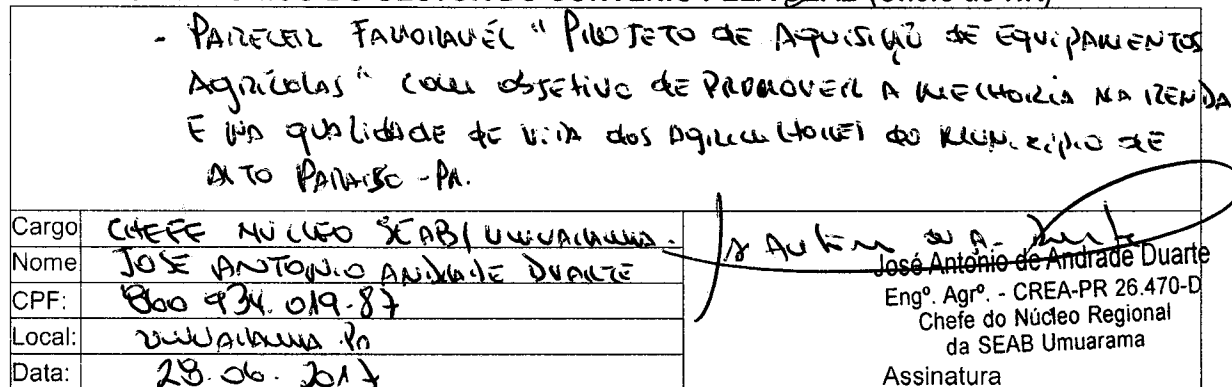 (Chefe do NR)
- PARECER FAVORAVÉL "PROJETO DE AQUISIÇÃO DE EQUIPAMENTOS
AGRÍCOLAS" COM OBJETIVO DE PROMOVER A MELHORIA NA RENDA
E NA QUALIDADE DE VIDA DOS AGRICULTORES DO MUNICÍPIO DE
ALTO PARAISO - PR.
Cargo CHEFE NUCLEO SEAB/UMUARAMA.
Nome JOSE ANTONIO ANDRADE DUARTE
CPF: 860 934.019-87
Local: UMUARAMA PR
Data: 28.06.2017
José Antônio de Andrade Duarte
Engº. Agrº. - CREA-PR 26.470-D
Chefe do Núcleo Regional
da SEAB Umuarama
Assinatura